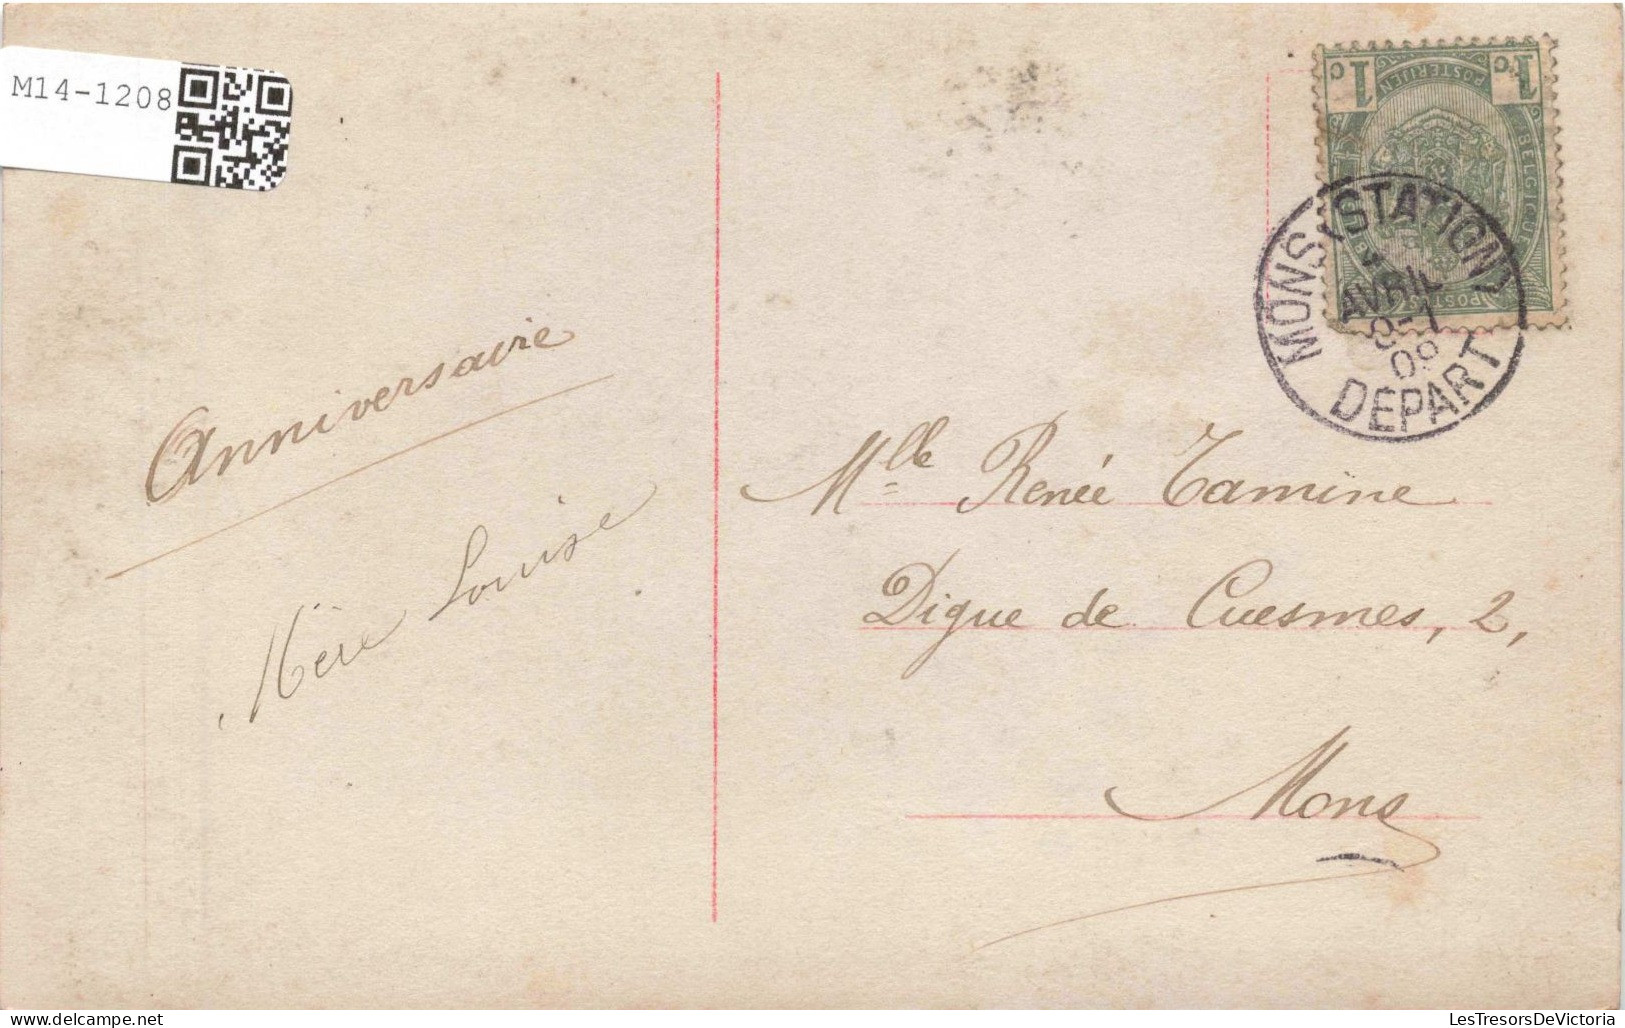 M14-1208
1c 1c
POSTERIJEN
BELGIQUE
POSTES
MONS (STATION)
AVRIL
8-7
09
DÉPART
Anniversaire
Mère Louise
Mlle Renée Tamine
Digue de Cuesmes, 2,
Mons
LesTresorsDeVictoria